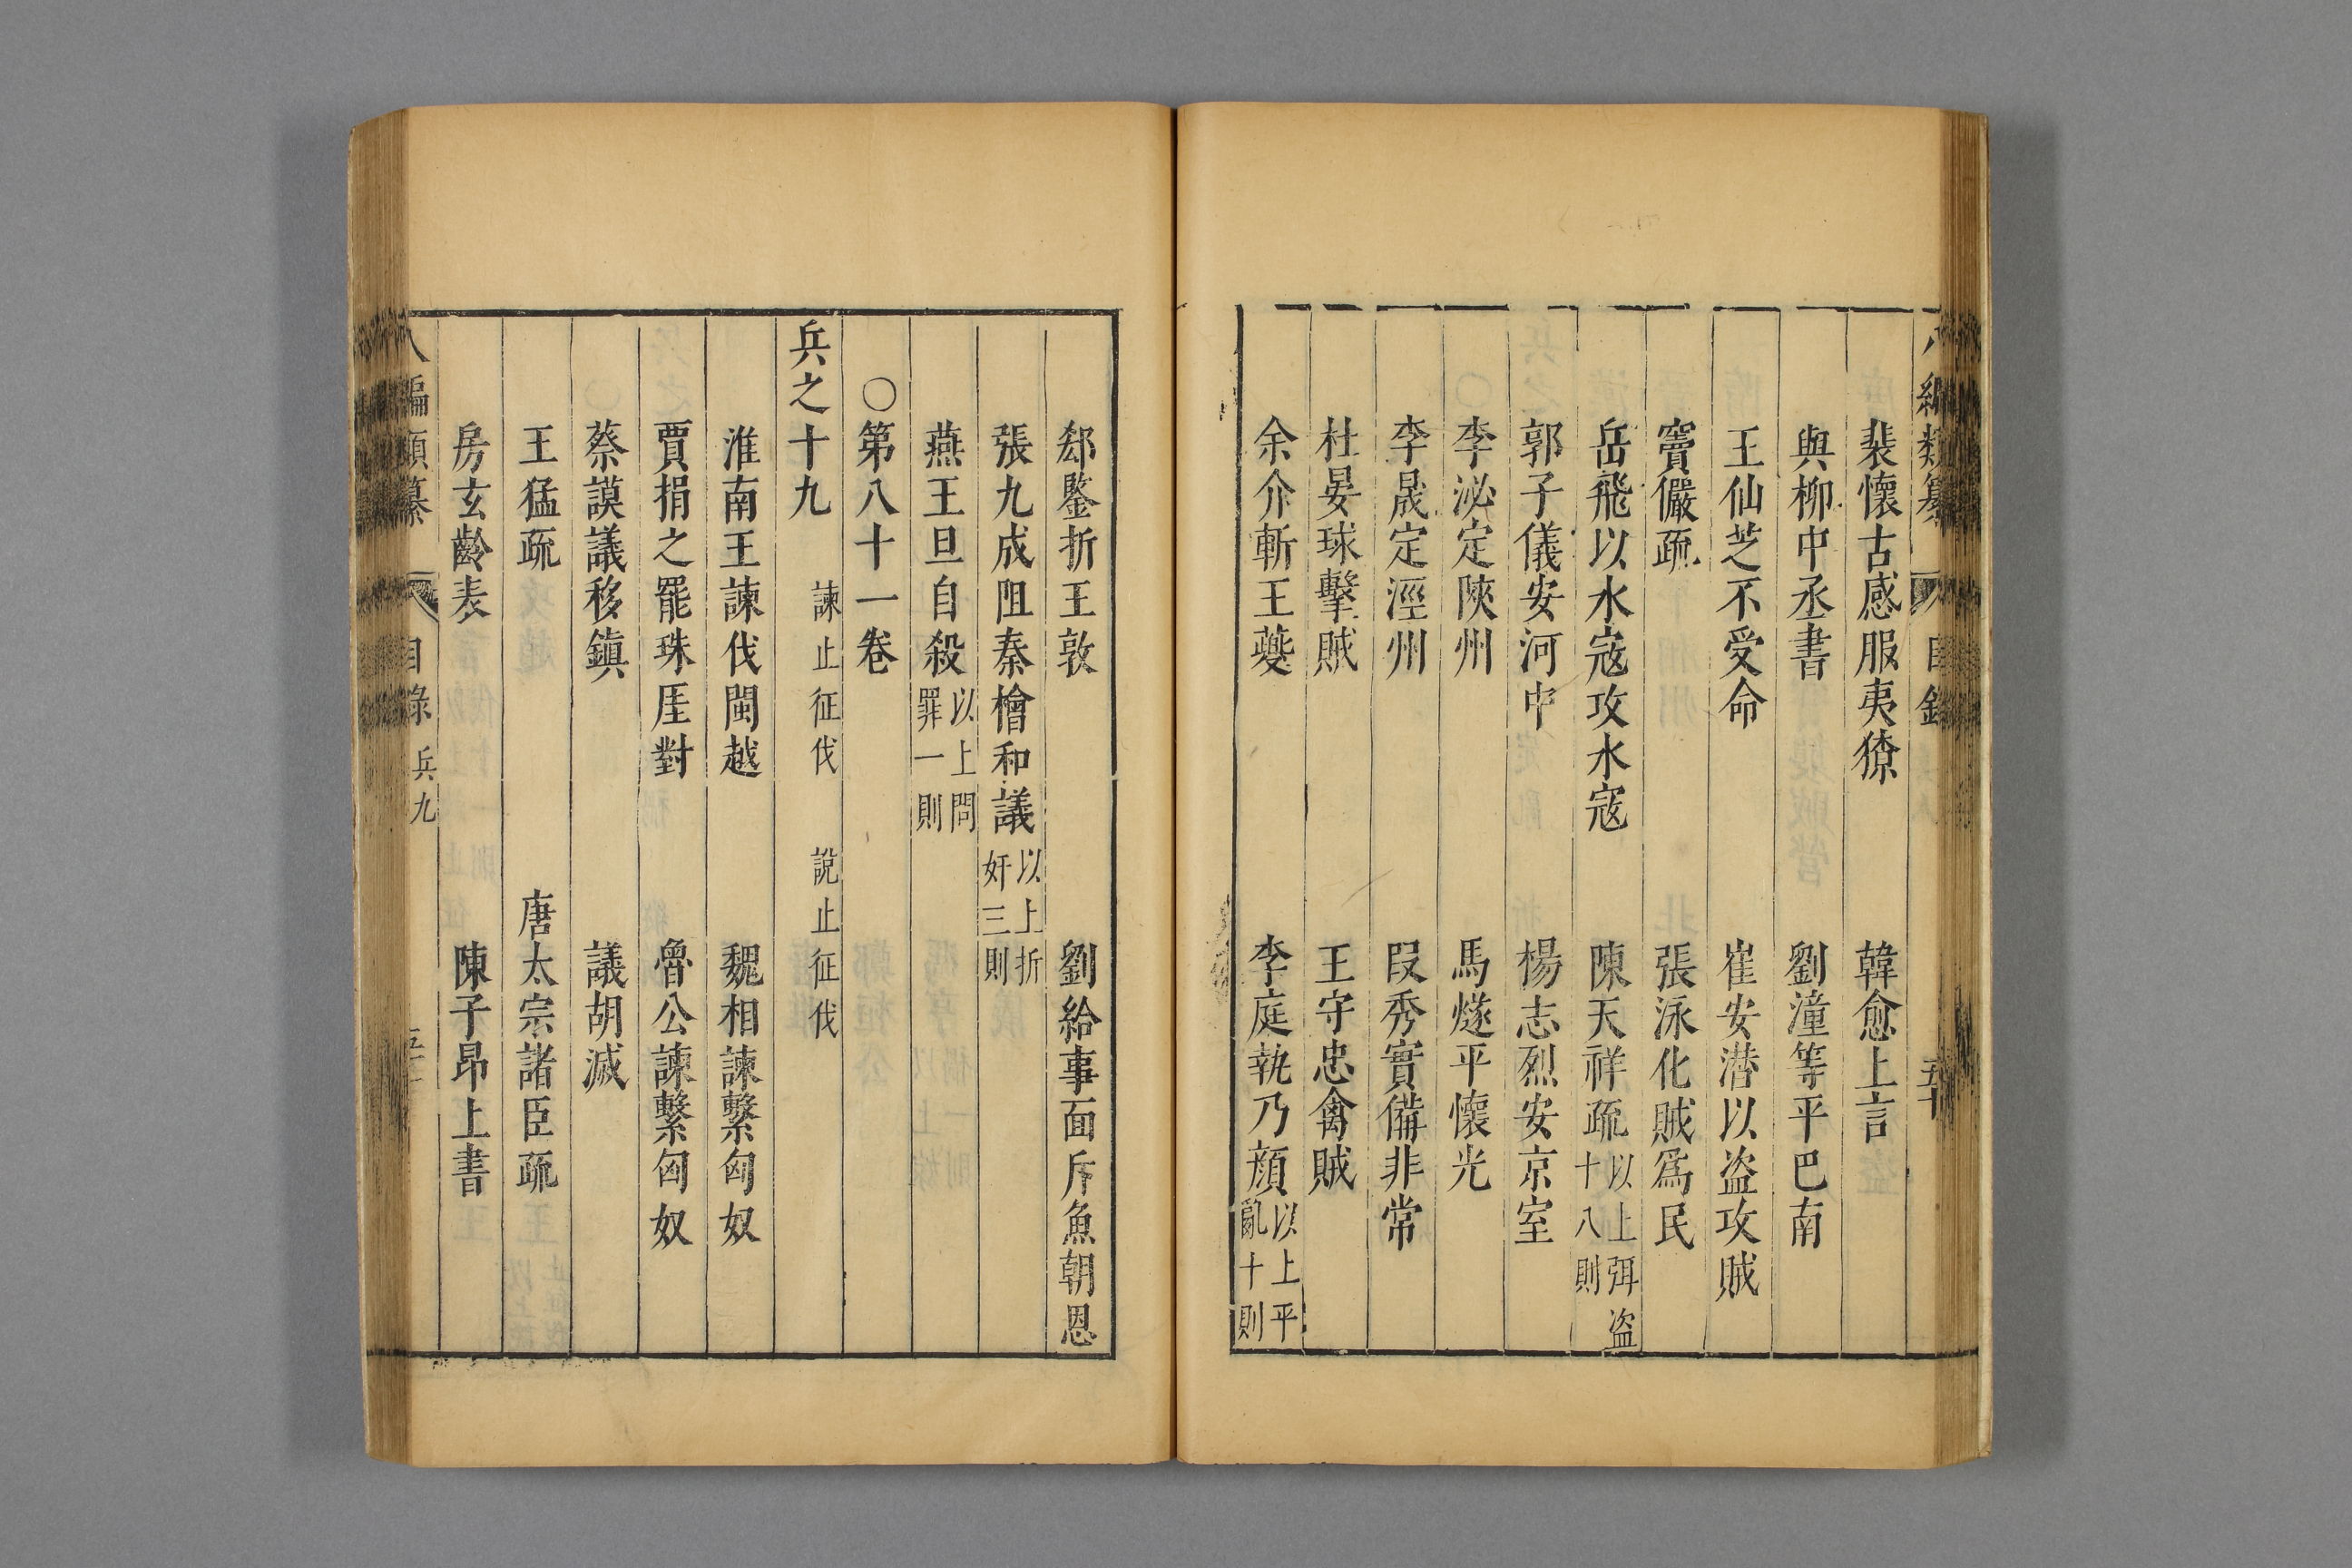 八編類纂 目錄 五十
裴懷古感服夷獠 韓愈上言
與柳中丞書 劉潼等平巴南
王仙芝不受命 崔安潜以盗攻賊
竇儼疏 張泳化賊爲民
岳飛以水寇攻水寇 陳天祥疏 以上弭盗十八則
郭子儀安河中 楊志烈安京室
李泌定陝州 馬燧平懷光
李晟定涇州 段秀實備非常
杜晏球擊賊 王守忠禽賊
余介斬王夔 李庭執乃顔 以上平亂十則
郄鑒折王敦 劉給事面斥魚朝恩
張九成阻秦檜和議 以上折奸三則
燕王旦自殺 以上問罪一則
○第八十一卷
兵之十九 諫止征伐 說止征伐
淮南王諫伐閩越 魏相諫繫匈奴
賈捐之罷珠厓對 魯公諫繫匈奴
蔡謨議移鎮 議胡滅
王猛疏 唐太宗諸臣疏
房玄齡表 陳子昂上書
八編類纂 目錄 兵九